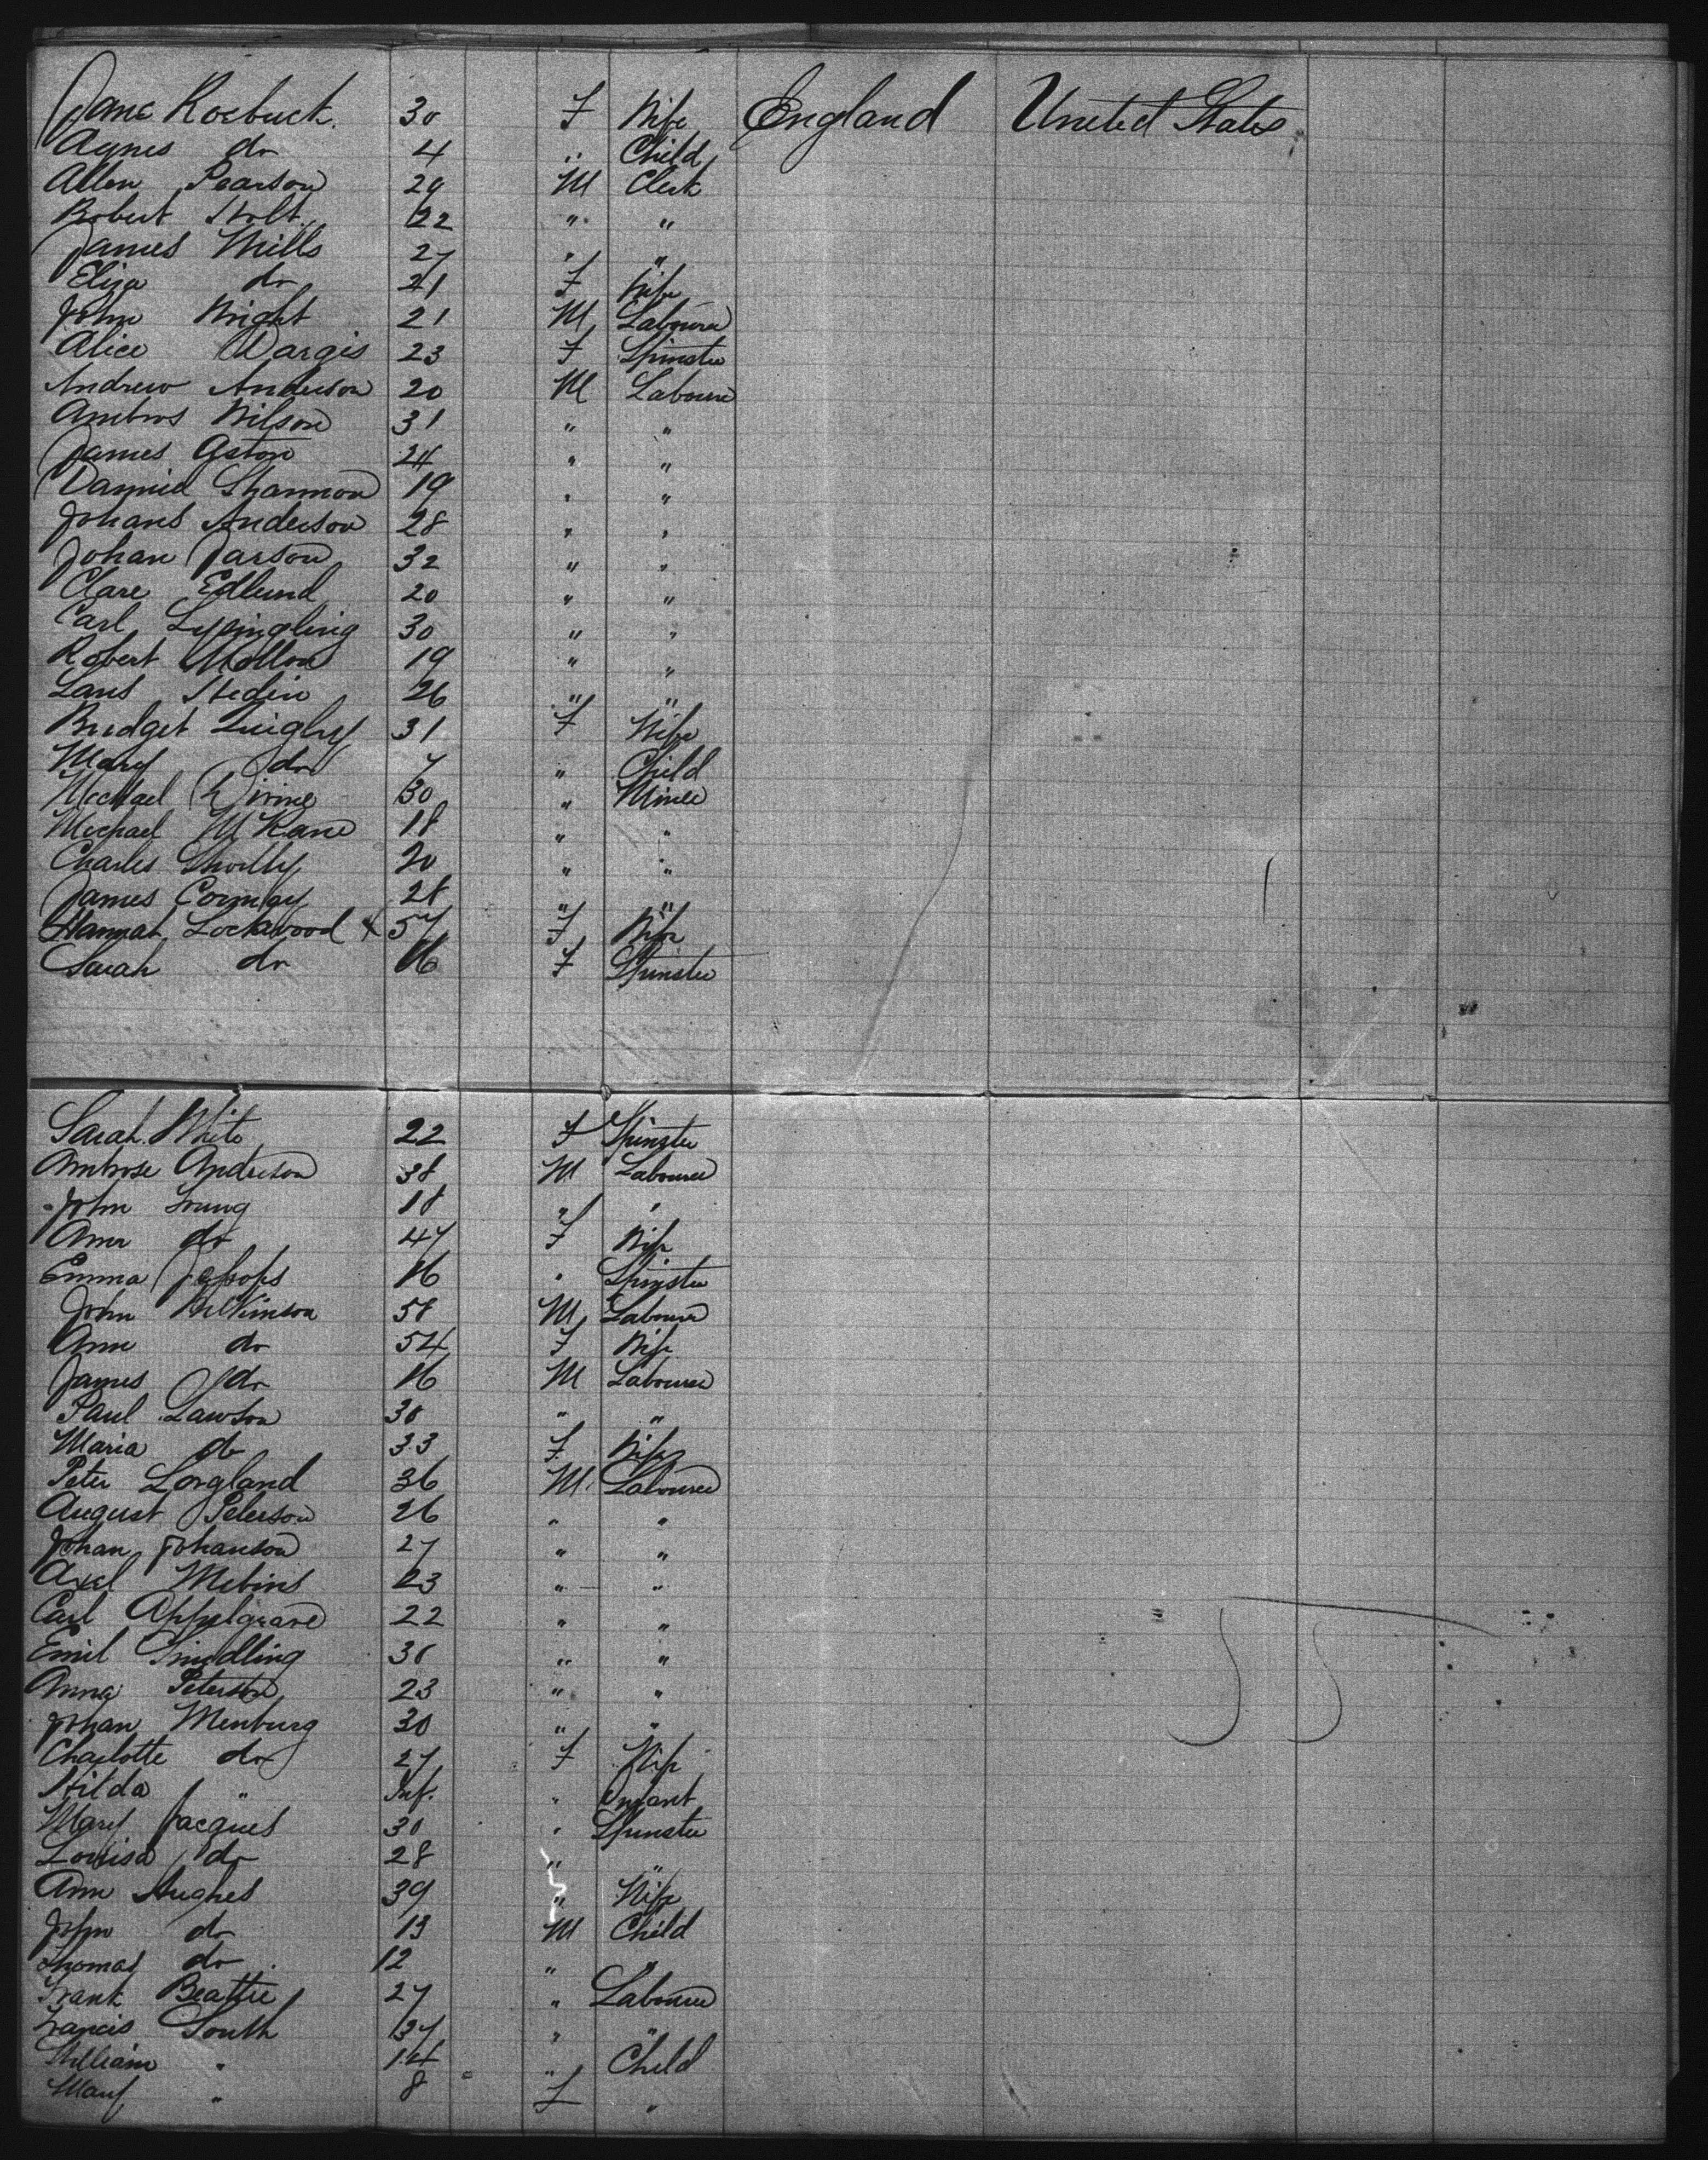 Jane Roebuck. 30 F Wife England United States
Agnes do 4 " Child
Allen Pearson 29 M Clerk
Robert Holt 22 " "
James Mills 27 " "
Eliza do 21 F Wife
John Wright 21 M Labourer
Alice 23 F Spinster
Andrew Anderson 20 M Labourer
Ambros Wilson 31 " "
James Aston 24 " "
Danniel Shannon 19 " "
Johans Anderson 28 " "
Johan Jarson 32 " "
Clare Edlund 20 " "
Carl 30 " "
Robert 19 " "
Lars Hedin 26 " "
Bridget Quigley 31 F Wife
Mary do 7 " Child
Michael Divine 30 " Miner
Michael McKane 18 " "
Charles 20 " "
James 28 " "
Hannah Lockwood x 57 F Wife
Sarah do 16 F Spinster
Sarah White 22 F Spinster
Ambrose Anderson 38 M Labourer
John 18 " "
Ann do 47 F Wife
Emma Jessops 16 " Spinster
John Wilkinson 58 M Labourer
Ann do 54 F Wife
James do 16 M Labourer
Paul Lawson 30 " "
Maria do 33 F Wife
Peter Lorgland 36 M Labourer
August Peterson 26 " "
Johan Johanson 27 " "
Axel 23 " "
Carl Appelgrave 22 " "
Emil 30 " "
Anna Peterson 23 " "
Johan Menburg 30 " "
Charlotte do 27 F Wife
Hilda " Inf. " Infant
Mary Jacques 30 " Spinster
Louisa do 28 " "
Ann Hughes 39 " Wife
John do 13 M Child
Thomas do 12 " "
Frank Beattie 27 " Labourer
Francis South 37 " "
William " 14 " Child
Mary " 8 F "